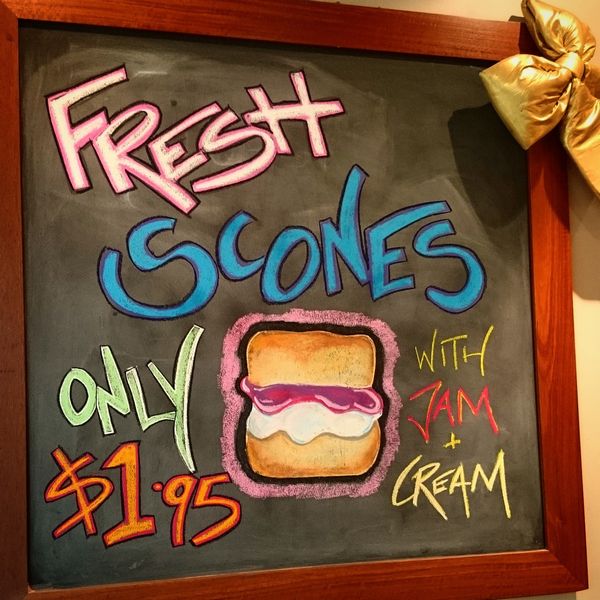 FRESH
SCONES
ONLY
$1.95
WITH
JAM
+
CREAM